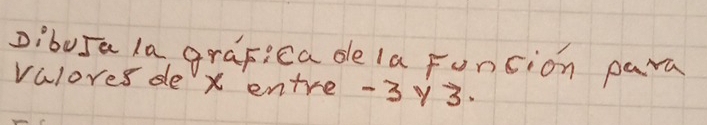 Dibuja la gráfica de la Función para
valores de x entre -3 y 3.